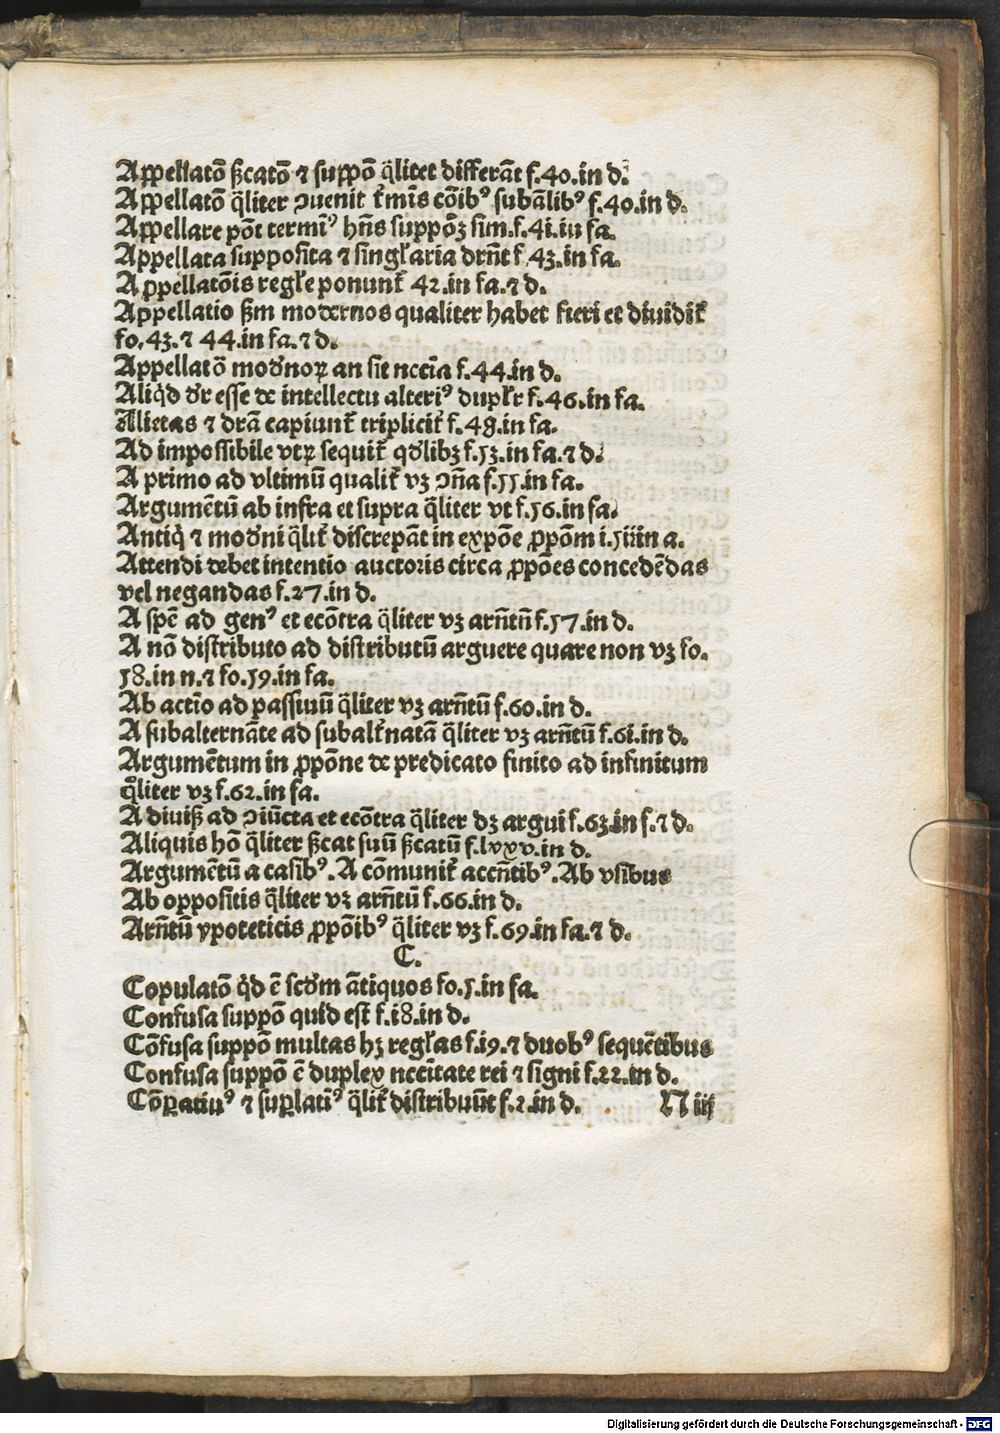 Appellatō ßcatō ⁊ suppō q̄litet differāt f.40.in d.
Appellatō q̄liter ꝯuenit t̄mīs cōibꝰ subālibꝰ f.40.in d.
Appellare pōt termīꝰ hn̄s suppōꝫ sim.f.4i.in fa.
Appellata supposita ⁊ singl̄aria drn̄t f 43.in fa.
A ppellatōis regl̄e ponunt̄ 42.in fa.⁊ d.
Appellatio ßm modernos qualiter habet fieri et diuidit̄
fo.43.⁊ 44.in fa.⁊ d.
Appellatō modn̄oꝝ an sit nccīa f.44.in d.
Aliq̇d dr̄ esse de intellectu alteriꝰ dupl̄r f.46.in fa.
Alietas ⁊ dr̄a capiunt̄ triplicit̄ f.48.in fa.
Ad impossibile vtꝝ sequit̄ qdlibꝫ f.53.in fa.⁊ d.
A primo ad vltimū qualit̄ vꝫ ꝯn̄a f.55.in fa.
Argumētū ab infra et supra q̄liter vt f.56.in fa.
Antiq̇ ⁊ modn̄i q̄lit̄ discrepāt in expōe ꝓpōm i.5iiin a.
Attendi debet intentio auctoris circa ꝓpōes concedēdas
vel negandas f.27.in d.
A spē ad genꝰ et ecōtra q̄liter vꝫ arn̄tū f.57.in d.
A nō distributo ad distributū arguere quare non vꝫ fo.
58.in n.⁊ fo.59.in fa.
Ab actīo ad passiuū q̄liter vꝫ arn̄tū f.60.in d.
A subalternāte ad subalt̄natā q̄liter vꝫ arn̄tū f.6i.in d.
Argumētum in ꝓpōne de predicato finito ad infinitum
q̄liter vꝫ f.62.in fa.
A diuiß ad ꝯiūcta et ecōtra q̄liter dꝫ argui f.63.in f.⁊ d.
Aliquis hō q̄liter ßcat suū ßcatū f.lxxv.in d.
Argumētū a casibꝰ. A cōmunit̄ accn̄tibꝰ. Ab vsibus
Ab oppositis q̄liter vꝫ arn̄tū f.66.in d.
Arn̄tū ypoteticis ꝓpōibꝰ q̄liter vꝫ f.69.in fa.⁊ d.
C.
Copulatō q̇d ē scd̄m ātiquos fo.5.in fa.
Confusa suppō quid est f.i8.in d.
Cōfusa suppō multas hꝫ regl̄as f.i9.⁊ duobꝰ sequētibus
Confusa suppō ē duplex nccītate rei ⁊ signi f.22.in d.
Cōꝑatiuꝰ ⁊ suꝑlatiꝰ q̄lit̄ distribuūt f.2.in d. N iij
Digitalisierung gefördert durch die Deutsche Forschungsgemeinschaft - DFG